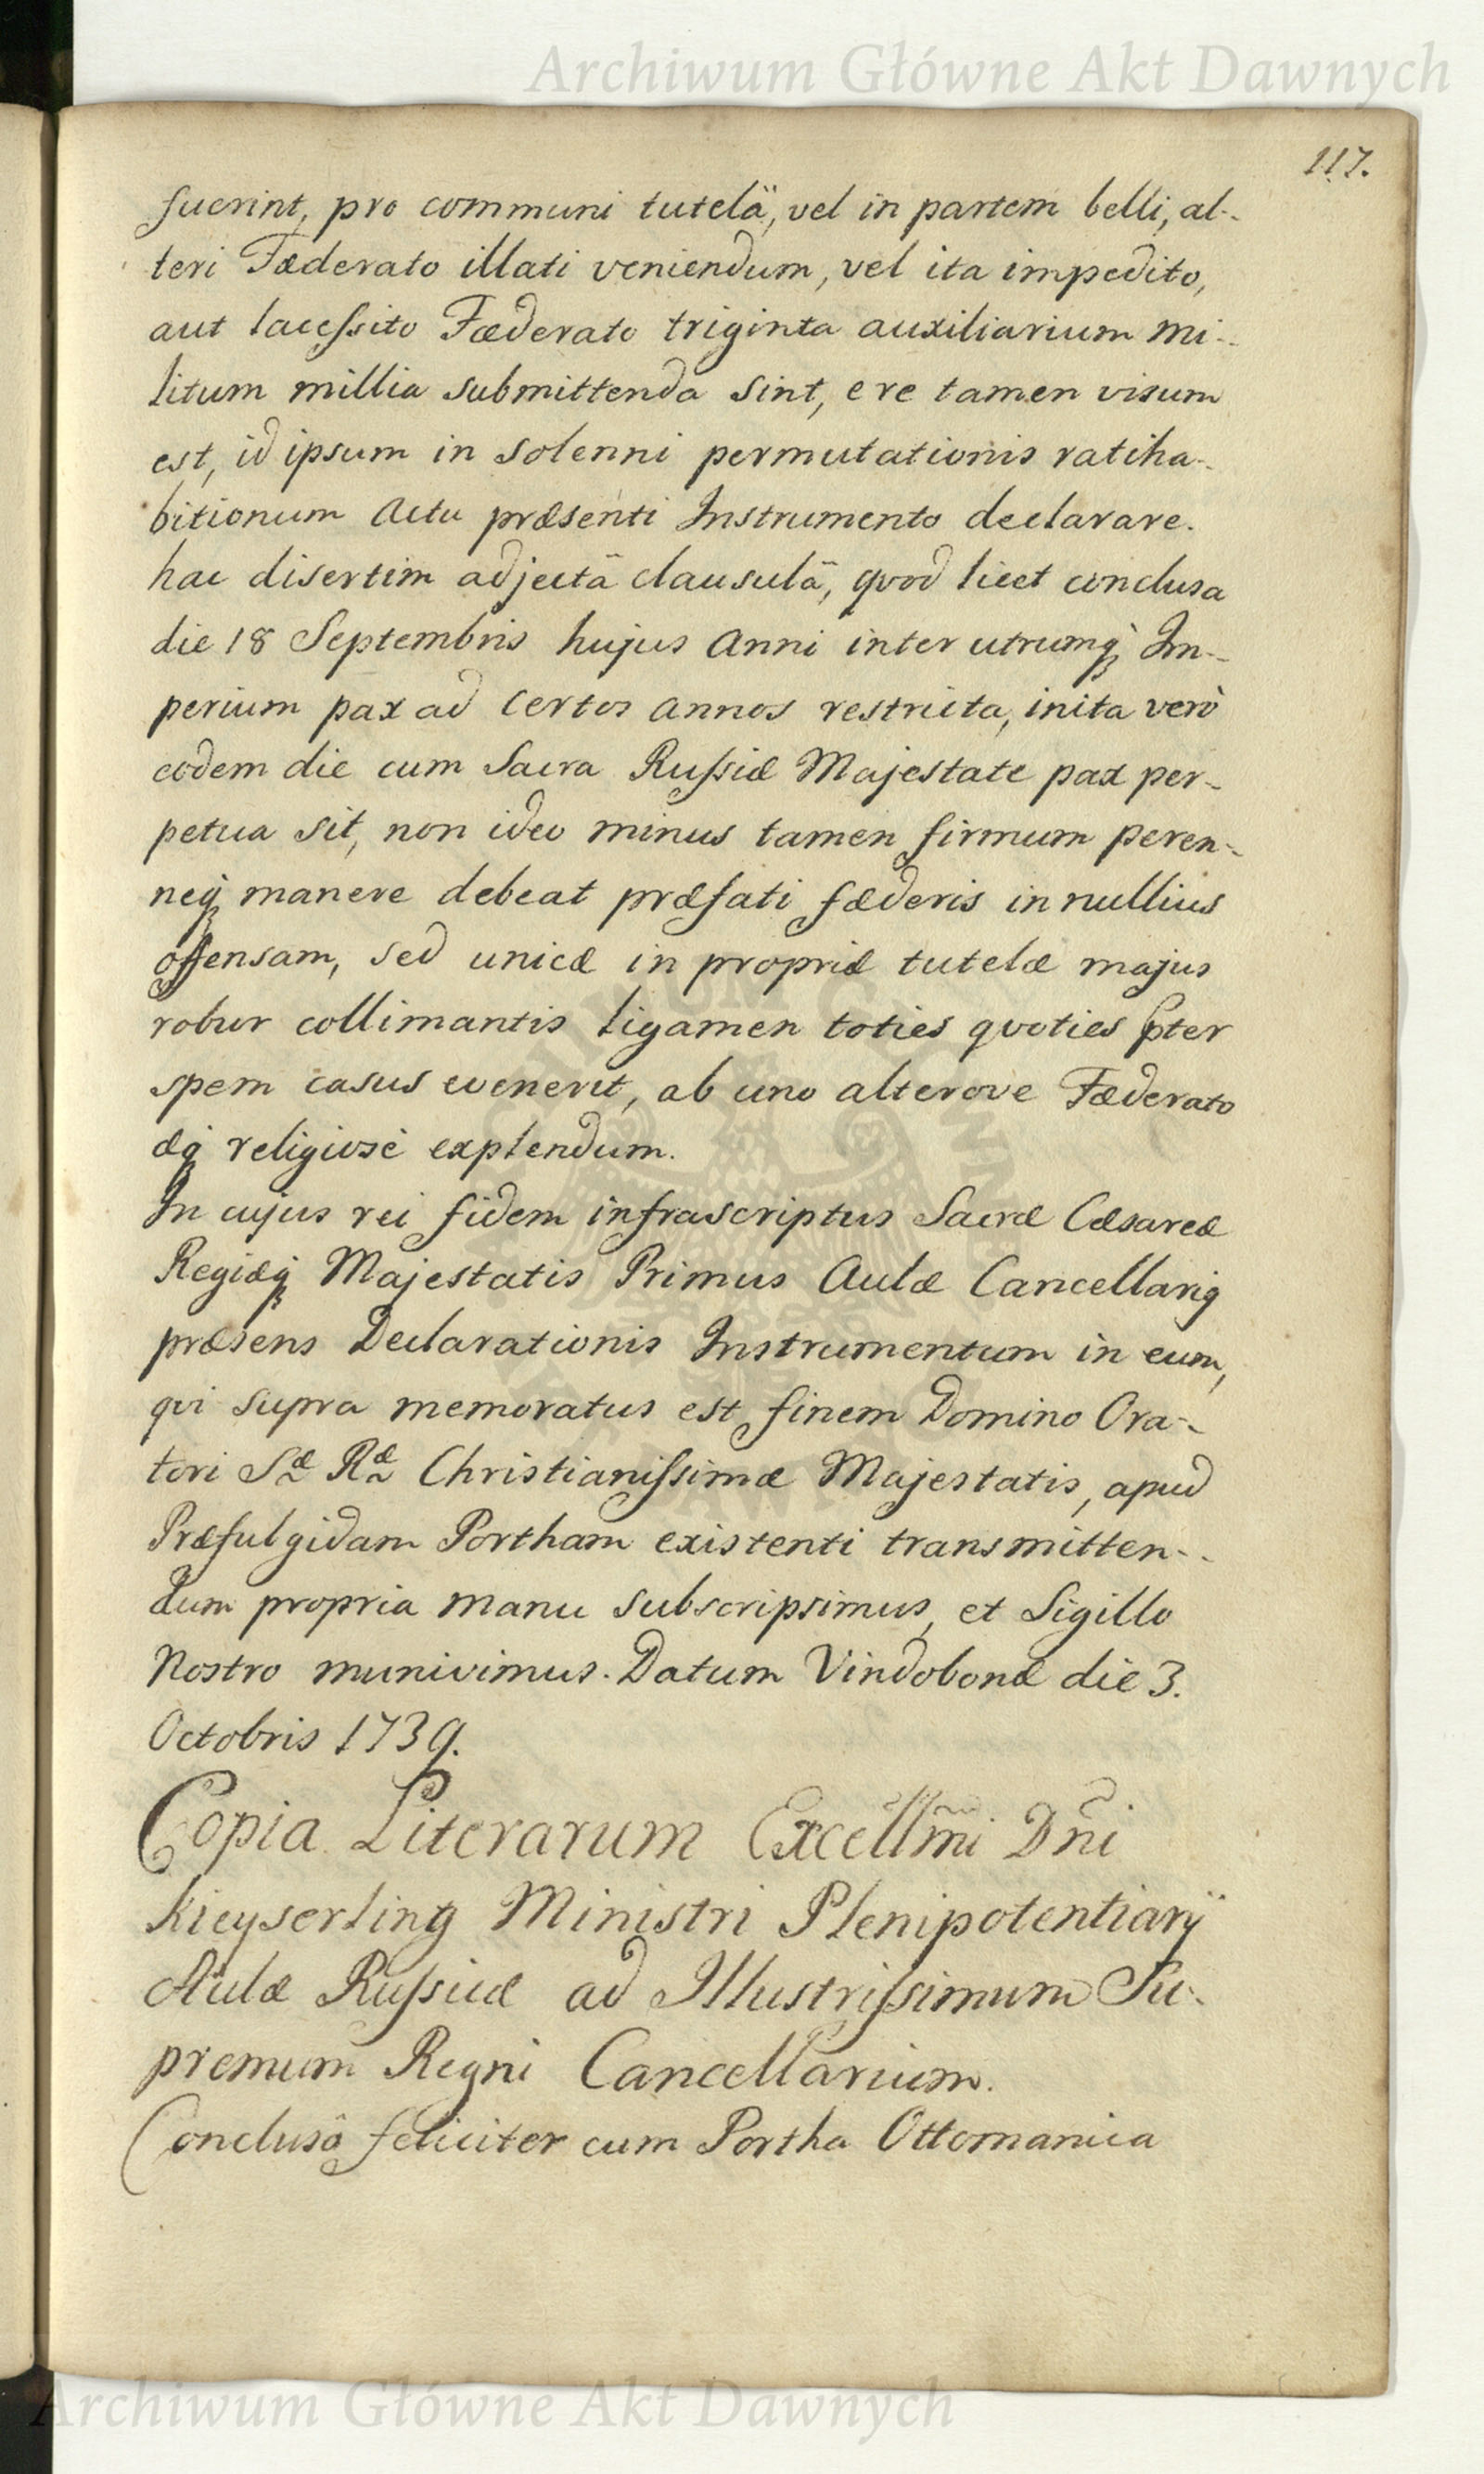 Archiwum Główne Akt Dawnych
117.
fuerint, pro communi tutelâ, vel in partem belli, al-
teri Fæderato illati veniendum, vel ita impedito,
aut lacessito Fæderato triginta auxiliarium mi-
litum millia submittenda sint, e re tamen visum
est, id ipsum in solenni permutationis ratiha-
bitionum Actu præsenti Instrumento declarare.
hac disertim adjectâ clausulâ, quod licet conclusa
die 18 Septembris hujus Anni inter utrumq; Im-
perium pax ad certos annos restricta, inita verò
eodem die cum Sacra Russiæ Majestate pax per-
petua sit, non ideo minus tamen firmum peren-
neq; manere debeat præfati fæderis in nullius
offensam, sed unicæ in propriæ tutelæ majus
robur collimantis ligamen toties quoties pter
spem casus evenerit, ab uno alterove Fæderato
æq; religiosè explendum.
In cujus rei fidem infrascriptus Sacræ Cæsareæ
Regiæq; Majestatis Primus Aulæ Cancellarig
præsens Declarationis Instrumentum in eum,
qui supra memoratus est finem Domino Ora-
tori Sæ Ræ Christianissimæ Majestatis, apud
Præfulgidam Portham existenti transmitten-
dum propria manu subscripsimus, et Sigillo
Nostro munivimus. Datum Vindobonæ die 3.
Octobris 1739.
Copia Literarum Excellmi Dni
Kieyserling Ministri Plenipotentiarÿ
Aulæ Russiæ ad Illustrissimum Su-
premum Regni Cancellarium.
Conclusâ feliciter cum Portha Ottomanica
Archiwum Główne Akt Dawnych